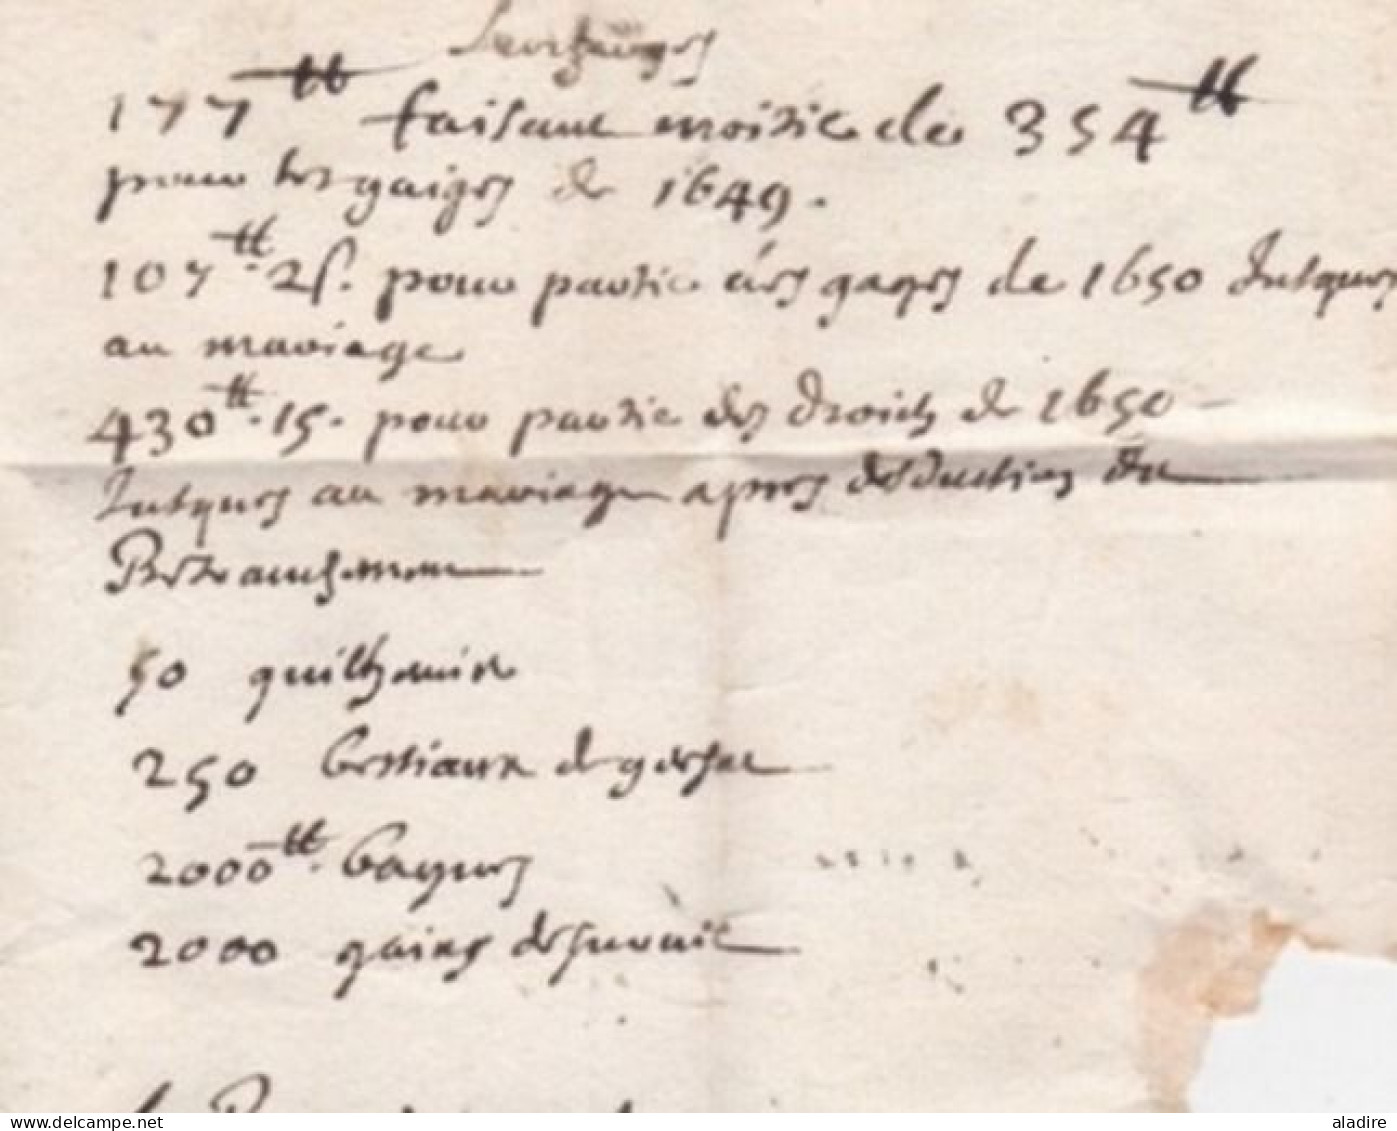 177ᵗᵗ faisant moitie de 354ᵗᵗ
pour les gaiges de 1649.
107ᵗᵗ. 2ſ. pour partie des gages de 1650 Jusques
au mariage
430ᵗᵗ. 15. pour partie des droicts de 1650
Jusques au mariage apres desduction du
Retranchemen
50
250 bestiaux de
2000ᵗᵗ. bagues
2000 gains de survie
aladire